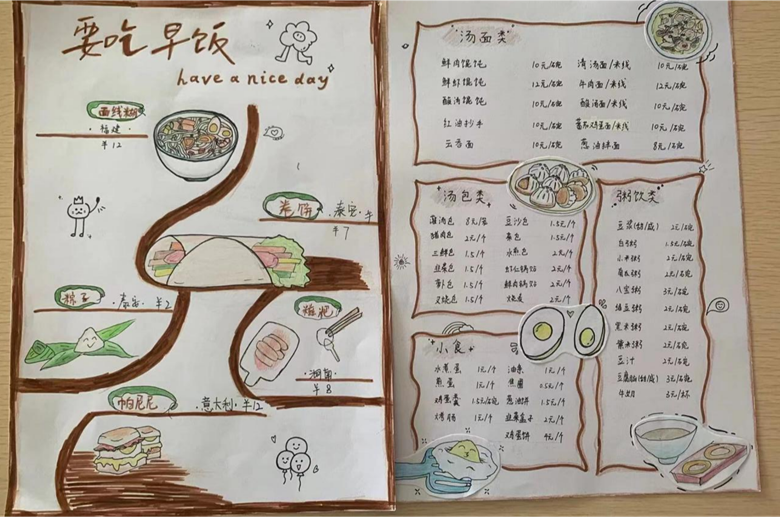 要吃早饭
have a nice day
面线糊
·福建·
¥12
卷饼 ·泰安·¥
¥7
粽子 ·泰安·¥2
糍粑
·湖南·
¥8
帕尼尼 ·意大利·¥12
汤面类
鲜肉馄饨 10元/碗 清汤面/米线 10元/碗
鲜虾馄饨 12元/碗 牛肉面/米线 12元/碗
酸汤馄饨 10元/碗 酸汤面/米线 10元/碗
红油抄手 10元/碗 番茄鸡蛋面/米线 10元/碗
10元/碗 葱油拌面 8元/碗
汤包类
灌汤包 8元/笼 豆沙包 1.5元/个
猪肉包 2元/个 菜包 1.5元/个
三鲜包 1.5/个 水煎包 2元/个
韭菜包 1.5/个 虾仁锅贴 2元/个
萝卜包 1.5/个 鲜肉锅贴 2元/个
叉烧包 1.5/个 烧麦 2元/个
粥饮类
豆浆(甜/咸) 2元/碗
白粥 1.5元/碗
小米粥 2元/碗
南瓜粥 2元/碗
八宝粥 3元/碗
绿豆粥 2元/碗
黑米粥 2元/碗
2元/碗
豆汁 2元/碗
豆腐脑(甜/咸) 3元/碗
牛奶 3元/杯
小食
水煮蛋 1元/个 油条 1元/个
煎蛋 1元/个 焦圈 1.5元/个
鸡蛋羹 1.5元/个 葱油饼 1.5元/个
烤肠 1元/个 韭菜盒子 2元/个
鸡蛋饼 4元/个